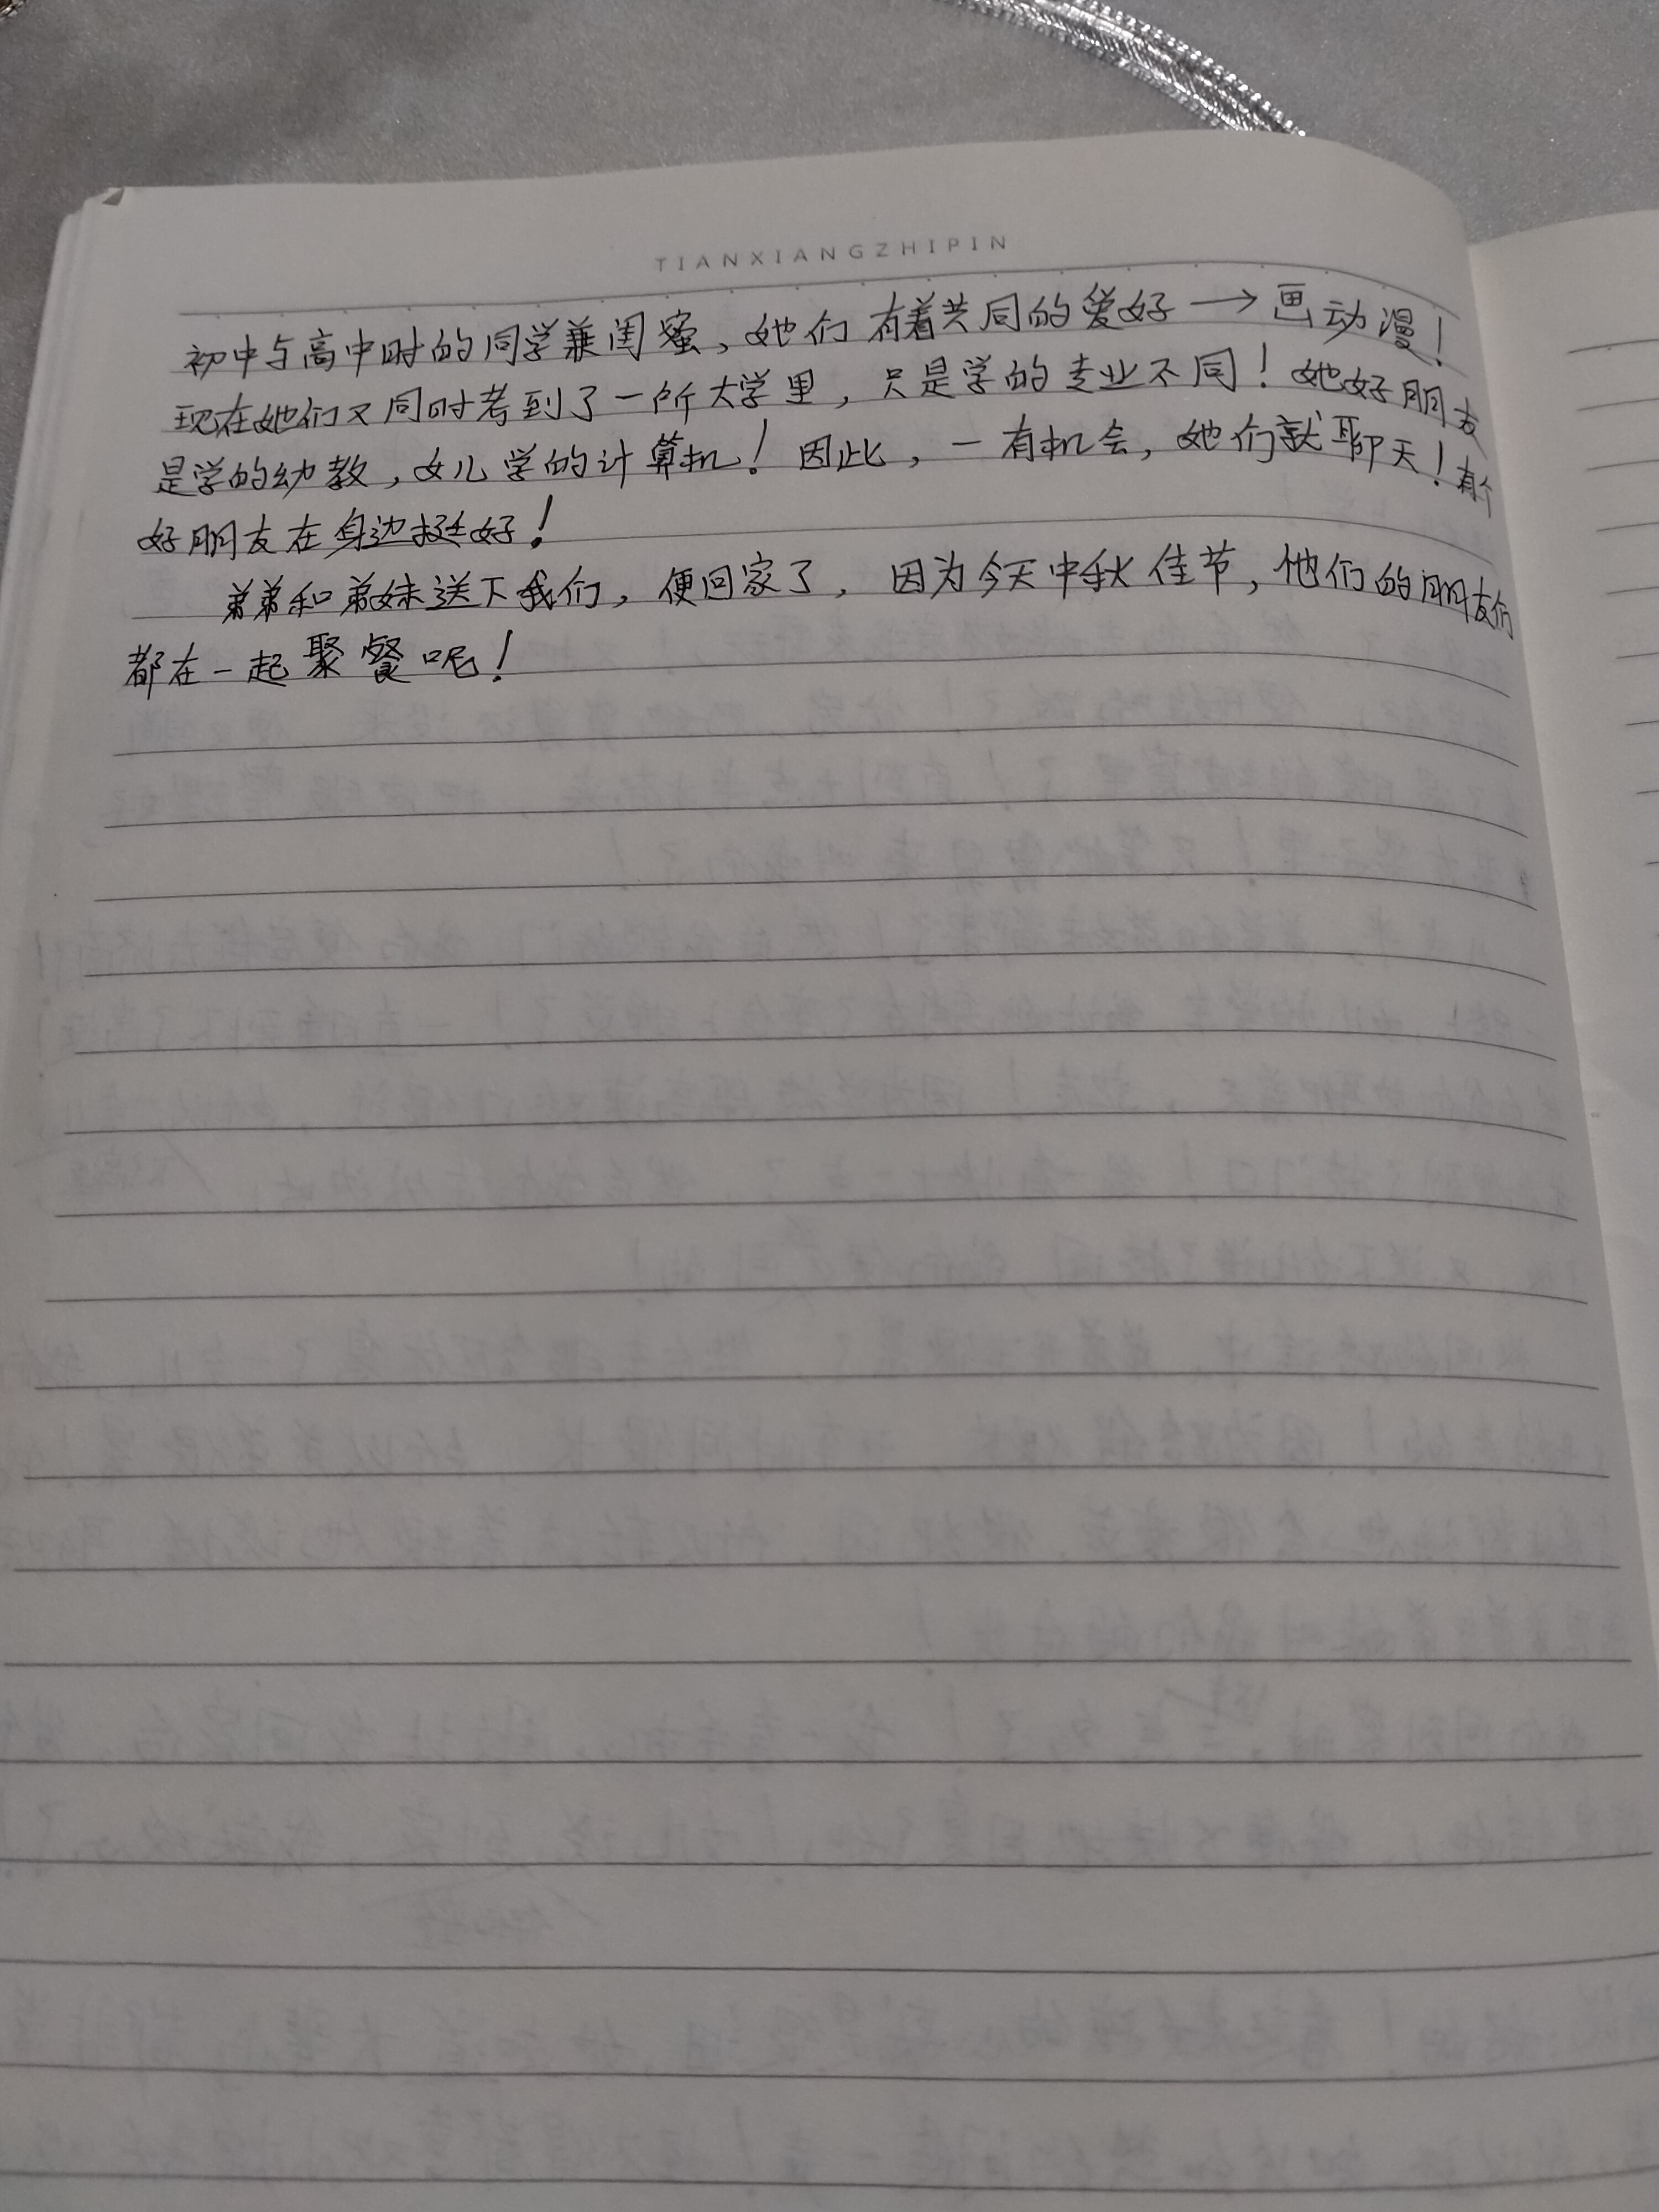 TIANXIANGZHIPIN
初中与高中时的同学兼闺蜜，她们有着共同的爱好→画动漫！
现在她们又同时考到了一所大学里，只是学的专业不同！她好朋友
是学的幼教，女儿学的计算机！因此，一有机会，她们就聊天！有个
好朋友在身边挺好！
弟弟和弟妹送下我们，便回家了，因为今天中秋佳节，他们的朋友们
都在一起聚餐呢！